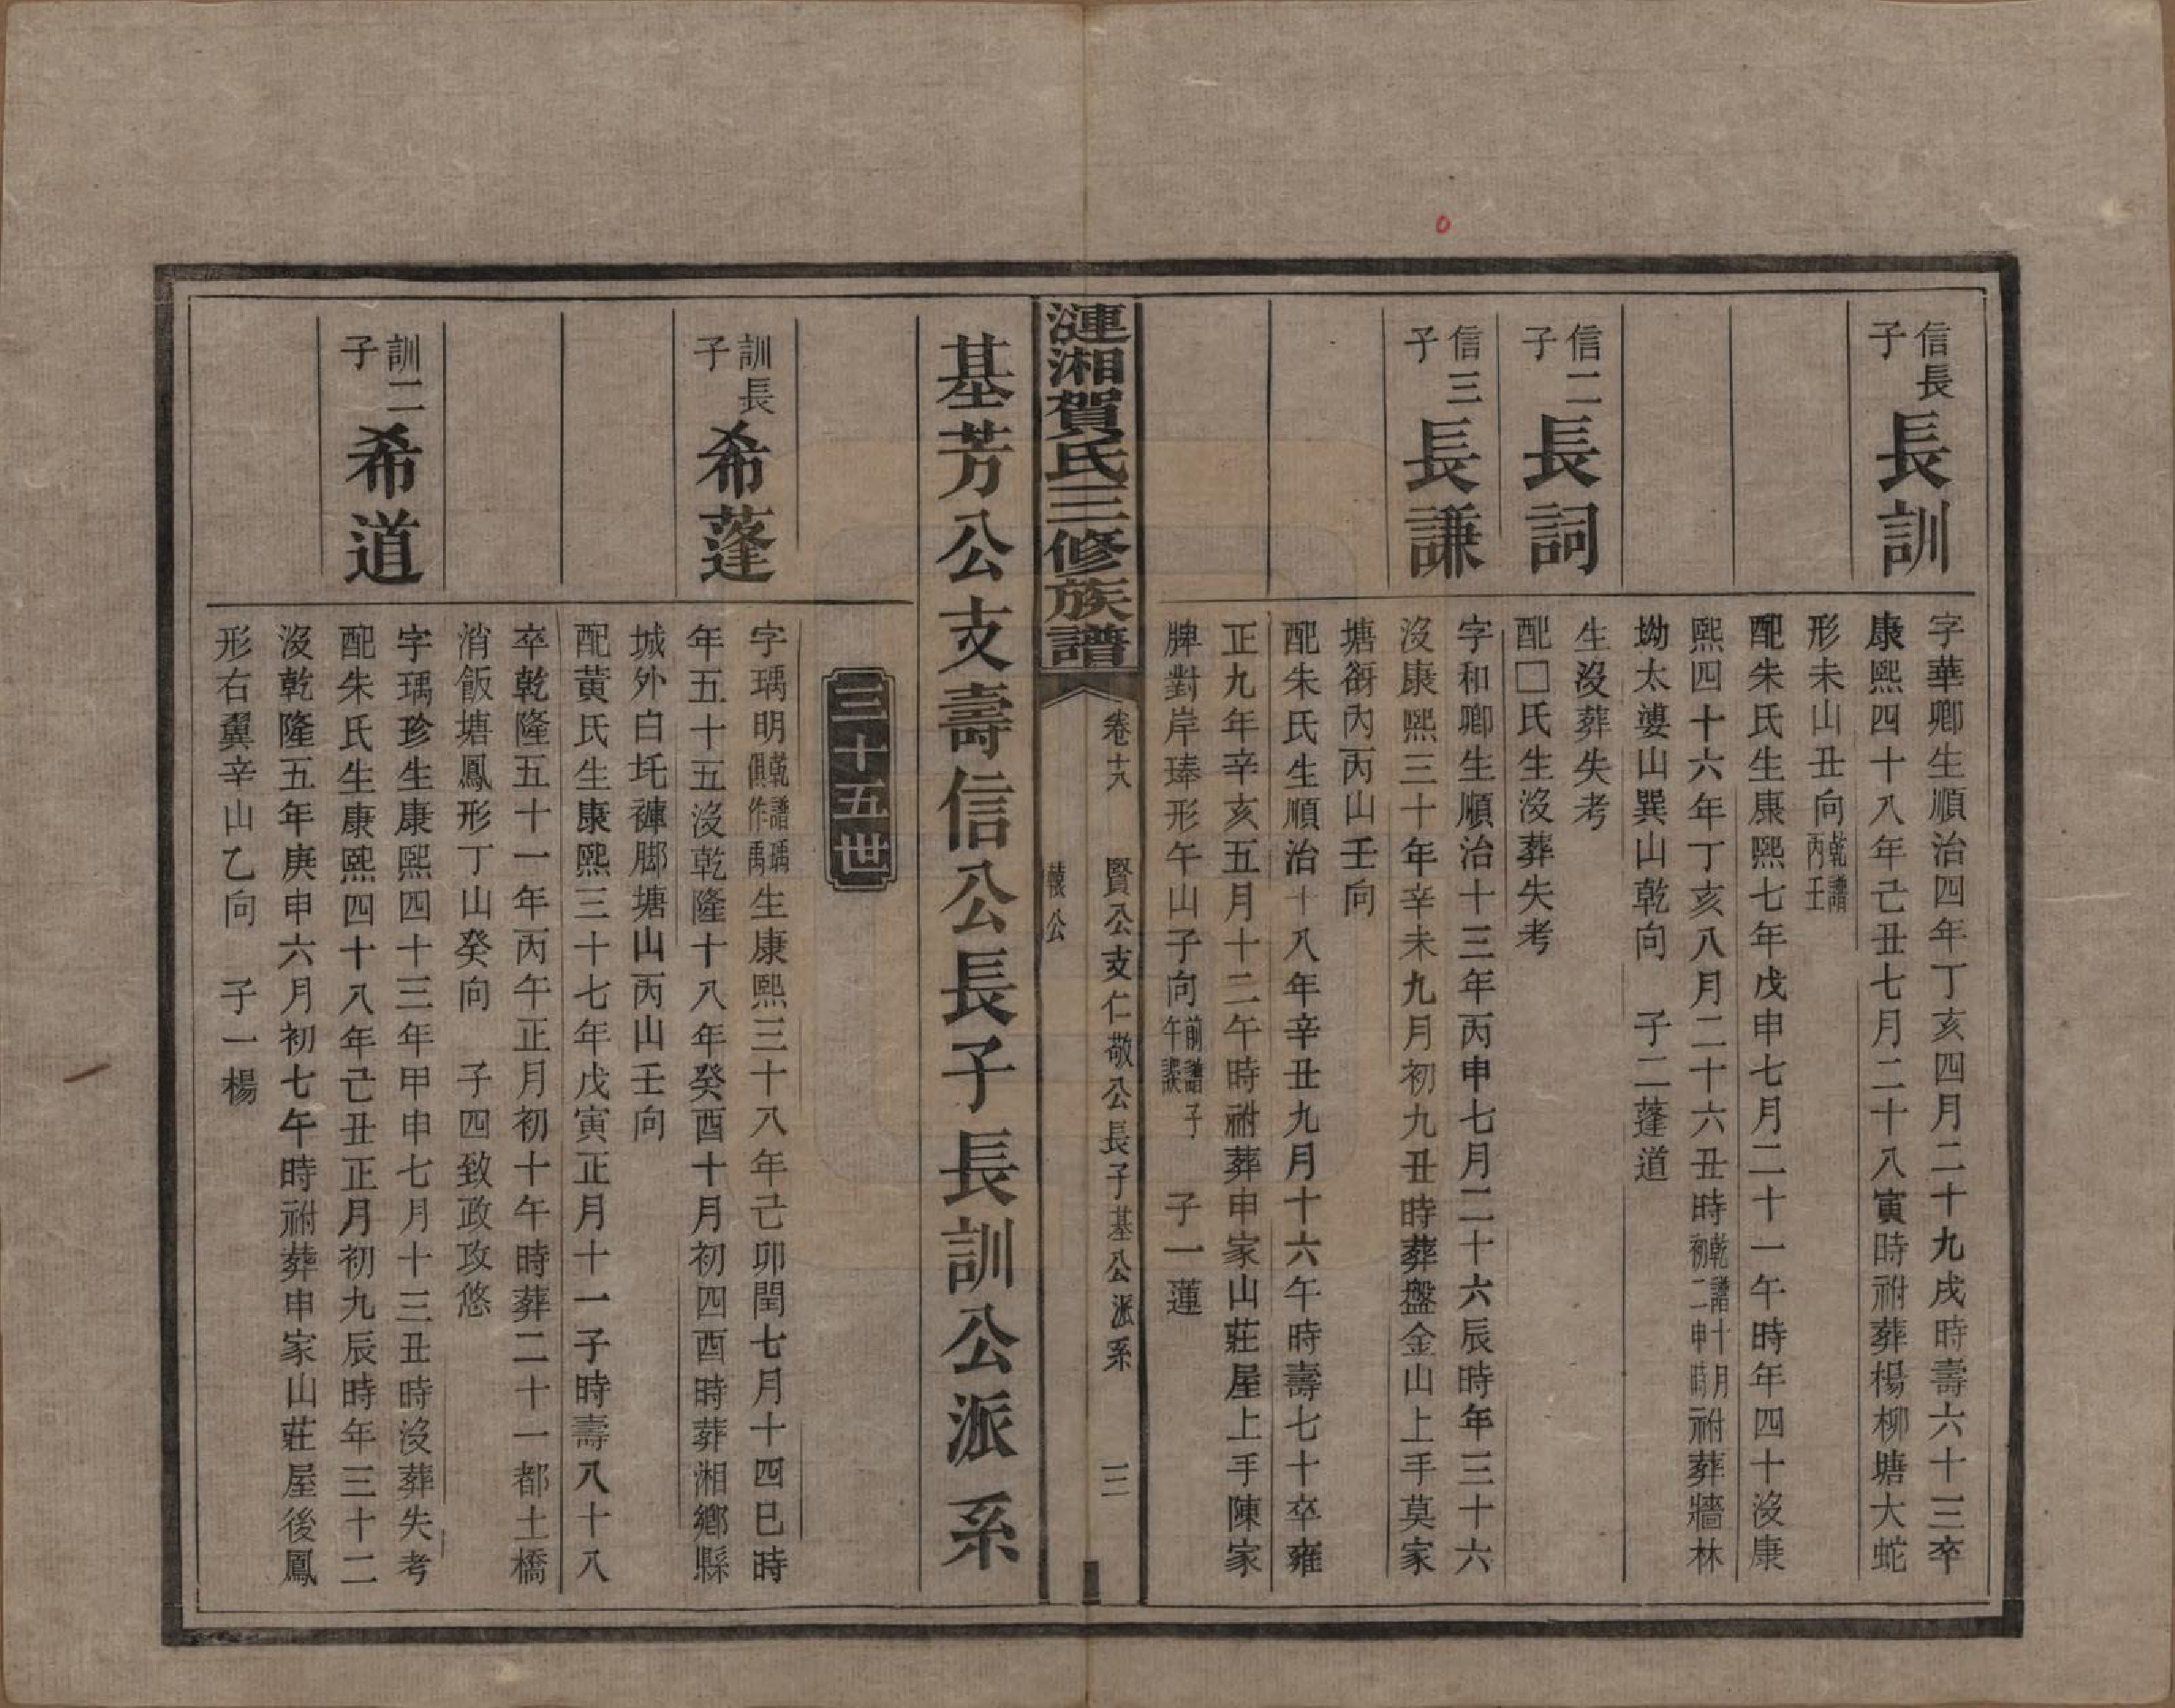 信長子 長訓
字華卿生順治四年丁亥四月二十九戌時壽六十三卒
康熙四十八年己丑七月二十八寅時祔葬楊柳塘大蛇
形未山丑向乾譜丙壬
配朱氏生康熙七年戊申七月二十一午時年四十沒康
熙四十六年丁亥八月二十六丑時乾譜十月初二申時祔葬牆林
坳太婆山巽山乾向 子二蓬道
信二子 長詞
生沒葬失考
配□氏生沒葬失考
信三子 長謙
字和卿生順治十三年丙申七月二十六辰時年三十六
沒康熙三十年辛未九月初九丑時葬盤金山上手莫家
塘衕內丙山壬向
配朱氏生順治十八年辛丑九月十六午時壽七十卒雍
正九年辛亥五月十二午時祔葬申家山莊屋上手陳家
脾對岸琫形午山子向前譜子午誤 子一蓮
漣湘賀氏三修族譜
卷十八 賢公支仁敬公長子基公派系 三
轅公
基芳公支壽信公長子長訓公派系
三十五世
訓長子 希蓬
字瑀明乾譜瑀俱作禹生康熙三十八年己卯閏七月十四巳時
年五十五沒乾隆十八年癸酉十月初四酉時葬湘鄉縣
城外白圫褲脚塘山丙山壬向
配黃氏生康熙三十七年戊寅正月十一子時壽八十八
卒乾隆五十一年丙午正月初十午時葬二十一都土橋
消飯塘鳳形丁山癸向 子四致政攻悠
訓二子 希道
字瑀珍生康熙四十三年甲申七月十三丑時沒葬失考
配朱氏生康熙四十八年己丑正月初九辰時年三十二
沒乾隆五年庚申六月初七午時祔葬申家山莊屋後鳳
形右翼辛山乙向 子一楊